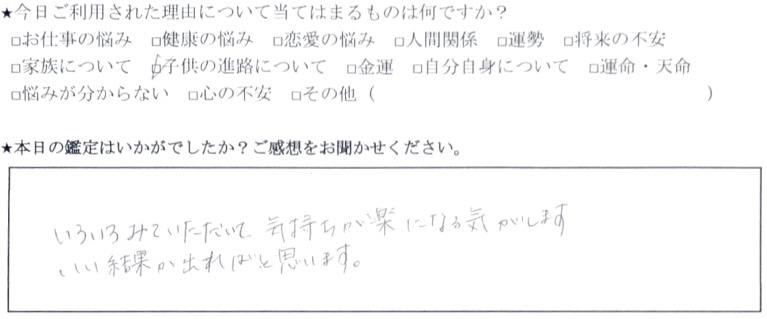 ★今日ご利用された理由について当てはまるものは何ですか？
□お仕事の悩み □健康の悩み □恋愛の悩み □人間関係 □運勢 □将来の不安
□家族について ☑子供の進路について □金運 □自分自身について □運命・天命
□悩みが分からない □心の不安 □その他（ ）
★本日の鑑定はいかがでしたか？ご感想をお聞かせください。
いろいろみていただいて、気持ちが楽になる気がします
いい結果が出ればと思います。